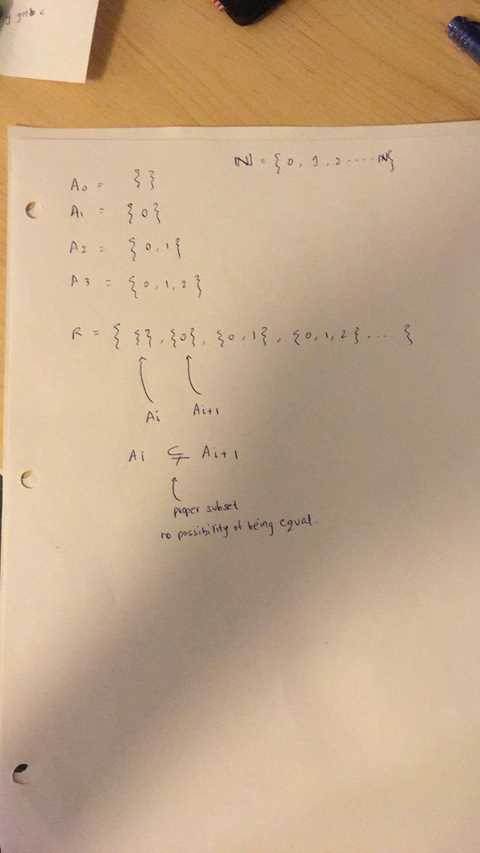 ℕ = {0, 1, 2 ..... N}
A0 = { }
A1 = {0}
A2 = {0,1}
A3 = {0,1,2}
R = { {}, {0}, {0,1}, {0,1,2} ... }
Ai Ai+1
Ai ⊊ Ai+1
proper subset
no possibility of being equal.